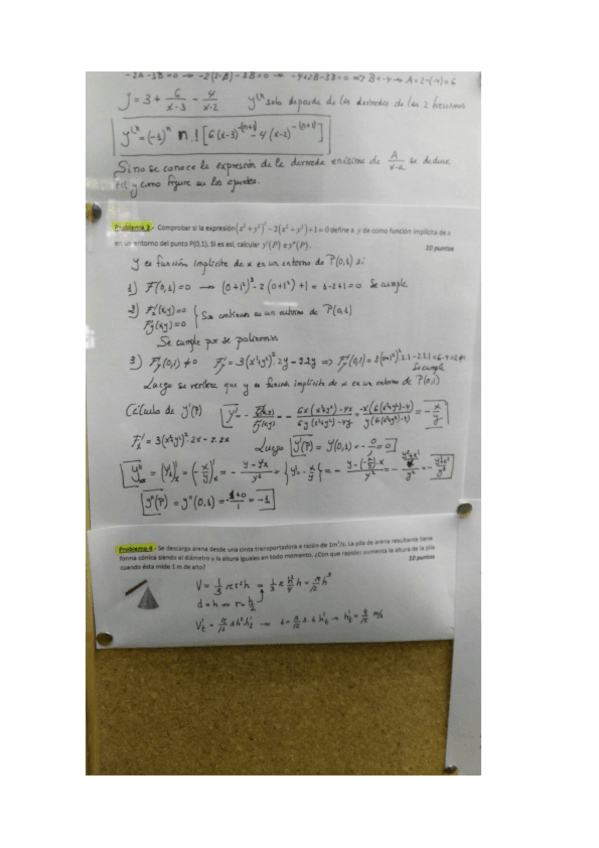 -2A-3B=0 → -2(2-B)-3B=0 → -4+2B-3B=0 => B=-4 → A=2-(-4)=6
y = 3 + 6/(x-3) - 4/(x-2) y⁽ⁿ solo depende de las derivadas de las 2 fracciones
y⁽ⁿ = (-1)ⁿ n! [6(x-3)^-(n+1) - 4(x-2)^-(n+1)]
Si no se conoce la expresión de la derivada enésima de A/(x-a) se deduce
tal y como figura en los apuntes.
Problema 2.- Comprobar si la expresión (x²+y²)³-2(x²+y²)+1=0 define a y de como función implícita de x
en un entorno del punto P(0,1). Si es así, calcular y'(P) e y"(P). 10 puntos
y es función implícita de x en un entorno de P(0,1) si:
1) F(0,1)=0 → (0+1²)³-2(0+1²)+1 = 1-2+1=0 Se cumple
2) F'x(x,y)=0
F'y(x,y)=0 } Son continuas en un entorno de P(0,1)
Se cumple por ser polinomios
3) F'y(0,1)≠0 F'y=3(x²+y²)²·2y-2.2y => F'y(0,1)=3(0+1²)².2.1-2.2.1=6-4=2≠0
Se cumple
Luego se verifica que y es función implícita de x en un entorno de P(0,1)
Cálculo de y'(P)
F'x = 3(x²+y²)²·2x-2.2x Luego y'(P) = y'(0,1) = -0/1 = 0
y"(P) = y"(0,1) = = -1
Problema 4.- Se descarga arena desde una cinta transportadora a razón de 1m³/s. La pila de arena resultante tiene
forma cónica siendo el diámetro y la altura iguales en todo momento. ¿Con que rapidez aumenta la altura de la pila
cuando ésta mide 1 m de alto? 10 puntos
V = 1/3 πr²h = 1/3 π h²/4 h = π/12 h³
d=h => r=h/2
V't = π/12 3h²h't → 1 = π/12 3.1 h't → h't = 4/π m/s